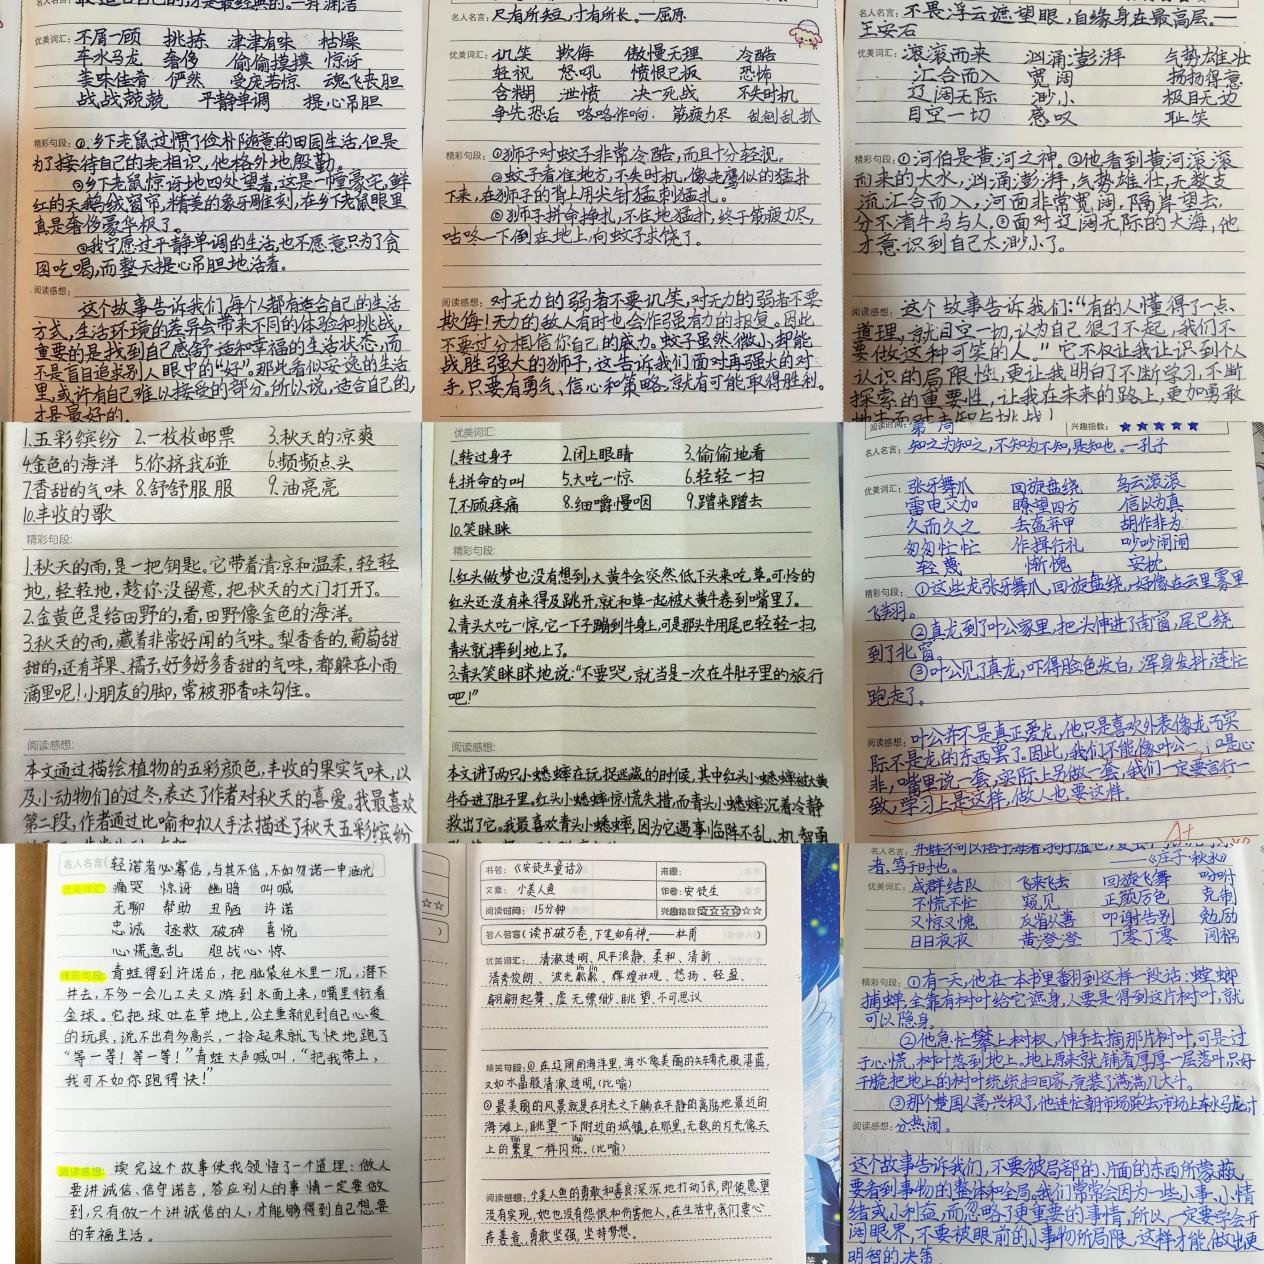 名人名言:
优美词汇: 不屑一顾 挑拣 津津有味 枯燥
车水马龙 奢侈 偷偷摸摸 惊讶
美味佳肴 俨然 受宠若惊 魂飞丧胆
战战兢兢 平静单调 提心吊胆
精彩句段: ①乡下老鼠过惯了俭朴随意的田园生活,但是
为了接待自己的老相识,他格外地殷勤。
②乡下老鼠惊讶地四处望着,这是一幢豪宅,鲜
红的天鹅绒窗帘,精美的象牙雕刻,在乡下老鼠眼里
真是奢侈豪华极了。
③我宁愿过平静单调的生活,也不愿意只为了贪
图吃喝,而整天提心吊胆地活着。
阅读感想:
这个故事告诉我们,每个人都有适合自己的生活
方式,生活环境的差异会带来不同的体验和挑战,
重要的是找到自己感舒适和幸福的生活状态,而
不是盲目追求别人眼中的“好”。那此看似安逸的生活
里,或许有自己难以接受的部分。所以说,适合自己的,
才是最好的。
名人名言: 尺有所短,寸有所长。—屈原
优美词汇: 讥笑 欺侮 傲慢无理 冷酷
轻视 怒吼 愤恨已极 恐怖
含糊 泄愤 决一死战 不失时机
争先恐后 咯咯作响 筋疲力尽 乱刨乱扒
精彩句段: ①狮子对蚊子非常冷酷,而且十分轻视。
②蚊子看准地方,不失时机,像老鹰似的猛扑
下来,在狮子的背上用尖针猛刺猛扎。
③狮子拼命挣扎,不住地猛扑,终于筋疲力尽,
咕咚一下倒在地上,向蚊子求饶了。
阅读感想: 对无力的弱者不要讥笑,对无力的弱者不要
欺侮!无力的敌人有时也会作强有力的报复。因此
不要过分相信你自己的威力。蚊子虽然微小,却能
战胜强大的狮子,这告诉我们面对再强大的对
手,只要有勇气、信心和策略,就有可能取得胜利。
名人名言: 不畏浮云遮望眼,自缘身在最高层。—
王安石
优美词汇: 滚滚而来 汹涌澎湃 气势雄壮
汇合而入 宽阔 扬扬得意
辽阔无际 渺小 极目无边
目空一切 感叹 耻笑
精彩句段: ①河伯是黄河之神。②他看到黄河滚滚
而来的大水,汹涌澎湃,气势雄壮,无数支
流汇合而入,河面非常宽阔,隔岸望去,
分不清牛马与人。③面对辽阔无际的大海,他
才意识到自己太渺小了。
阅读感想: 这个故事告诉我们:“有的人懂得了一点
道理,就目空一切,认为自己很了不起,我们不
要做这种可笑的人。”它不仅让我认识到个人
认识的局限性,更让我明白了不断学习,不断
探索的重要性,让我在未来的路上,更加勇敢
地去面对未知与挑战!
1.五彩缤纷 2.一枚枚邮票 3.秋天的凉爽
4.金色的海洋 5.你挤我碰 6.频频点头
7.香甜的气味 8.舒舒服服 9.油亮亮
10.丰收的歌
精彩句段:
1.秋天的雨,是一把钥匙。它带着清凉和温柔,轻轻
地,轻轻地,趁你没留意,把秋天的大门打开了。
2.金黄色是给田野的,看,田野像金色的海洋。
3.秋天的雨,藏着非常好闻的气味。梨香香的,葡萄甜
甜的,还有苹果、橘子,好多好多香甜的气味,都躲在小雨
滴里呢!小朋友的脚,常被那香味勾住。
阅读感想:
本文通过描绘植物的五彩颜色,丰收的果实气味,以
及小动物们的过冬,表达了作者对秋天的喜爱。我最喜欢
第二段,作者通过比喻和拟人手法描述了秋天五彩缤纷
优美词汇:
1.转过身子 2.闭上眼睛 3.偷偷地看
4.拼命的叫 5.大吃一惊 6.轻轻一扫
7.不顾疼痛 8.细嚼慢咽 9.蹭来蹭去
10.笑眯眯
精彩句段:
1.红头做梦也没有想到,大黄牛会突然低下头来吃草。可怜的
红头还没有来得及跳开,就和草一起被大黄牛卷到嘴里了。
2.青头大吃一惊,它一下子蹦到牛身上,可是那头牛用尾巴轻轻一扫,
青头就摔到地上了。
3.青头笑眯眯地说:“不要哭,就当是一次在牛肚子里的旅行
吧!”
阅读感想:
本文讲了两只小蟋蟀在玩捉迷藏的时候,其中红头小蟋蟀被大黄
牛吞进了肚子里。红头小蟋蟀惊慌失措,而青头小蟋蟀沉着冷静
救出了它。我最喜欢青头小蟋蟀,因为它遇事临阵不乱,机智勇
阅读时间: 第一周 兴趣指数: ★★★★★
名人名言: 知之为知之,不知为不知,是知也。—孔子
优美词汇: 张牙舞爪 回旋盘绕 乌云滚滚
雷电交加 瞭望四方 信以为真
久而久之 丢盔弃甲 胡作非为
匆匆忙忙 作揖行礼 吵吵闹闹
轻蔑 惭愧 安枕
精彩句段: ①这些龙张牙舞爪,回旋盘绕,好像在云里雾里
飞翔。
②真龙到了叶公家里,把头伸进了南窗,尾巴绕
到了北窗。
③叶公见了真龙,吓得脸色发白,浑身发抖,连忙
跑走了。
阅读感想: 叶公并不是真正爱龙,他只是喜欢外表像龙而实
际不是龙的东西罢了。因此,我们不能像叶公一,口是心
非,嘴里说一套,实际上另做一套,我们一定要言行一
致,学习上是这样,做人也要这样。
A+
名人名言(轻诺者必寡信,与其不信,不如勿诺—申涵光
优美词汇: 痛哭 惊讶 幽暗 叫喊
无聊 帮助 丑陋 许诺
忠诚 拯救 破碎 喜悦
心慌意乱 胆战心惊
精彩句段: 青蛙得到许诺后,把脑袋往水里一沉,潜下
井去,不多一会儿工夫又游到水面上来,嘴里衔着
金球。它把球吐在草地上,公主重新见到自己心爱
的玩具,说不出有多高兴,一拾起来就飞快地跑了
“等一等!等一等!”青蛙大声喊叫,“把我带上,
我可不如你跑得快!”
阅读感想: 读完这个故事使我领悟了一个道理:做人
要讲诚信、信守诺言,答应别人的事情一定要做
到,只有做一个讲诚信的人,才能够得到自己想要
的幸福生活。
书名:《安徒生童话》 来源:
文章: 小美人鱼 作者:安徒生
阅读时间: 15分钟 兴趣指数☆☆☆☆☆☆
名人名言(读书破万卷,下笔如有神。——杜甫
优美词汇: 清澈透明、风平浪静、柔和、清新、
清秀俊朗、波光粼粼、辉煌壮观、悠扬、轻盈、
翩翩起舞、虚无缥缈、眺望、不可思议
精美句段:①在辽阔的海洋里,海水像美丽的矢车菊花般湛蓝,
又如水晶般清澈透明。(比喻)
②最美丽的风景就是在月光之下躺在平静的离陆地最近的
海滩上,眺望一下附近的城镇。在那里,无数的灯光像天
上的繁星一样闪烁。(比喻)
阅读感想:小美人鱼的勇敢和善良深深地打动了我,即使愿望
没有实现,她也没有怨恨和伤害他人。在生活中,我们要心
存善意,勇敢坚强,坚持梦想。
者,笃于时也。 ——《庄子·秋水》
优美词汇: 成群结队 飞来飞去 回旋飞舞 吩咐
不慌不忙 窥见 正颜厉色 克制
又惊又愧 反省从善 叩谢告别 勉励
日日夜夜 黄澄澄 丁零丁零 闯祸
精彩句段: ①有一天,他在一本书里翻到这样一段话:螳螂
捕蝉,全靠有树叶给它遮身,人要是得到这片树叶,就
可以隐身。
②他急忙攀上树杈,伸手去摘那片树叶,可是过
于心慌,树叶落到地上。地上原来就铺着厚厚一层落叶,只好
干脆把地上的树叶统统扫回家,竟装了满满几大斗。
③那个楚国人高兴极了,他连忙朝市场跑去,市场上车水马龙,十
阅读感想: 分热闹。
这个故事告诉我们,不要被局部的、片面的东西所蒙蔽,
要看到事物的整体和全局。我们常常会因为一些小事、小情
绪或小利益,而忽略了更重要的事情,所以,一定要学会开
阔眼界,不要被眼前的小事物所局限,这样才能做出更
明智的决策